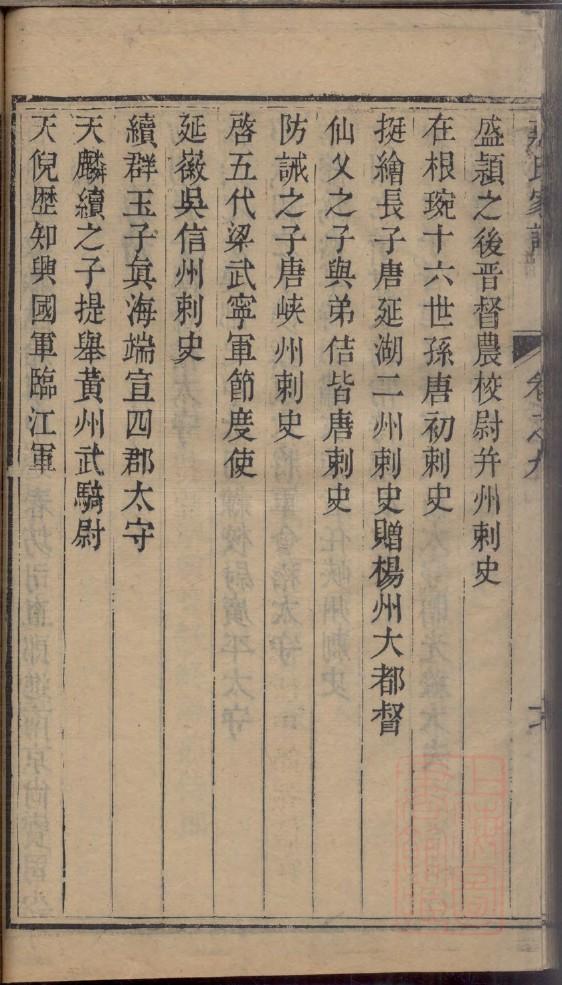 盛頴之後晋督農校尉并州刺史
在根琬十六世孫唐初刺史
挺繪長子唐延湖二州刺史贈楊州大都督
仙父之子與弟佶皆唐刺史
防誠之子唐峽州刺史
啓五代梁武寧軍節度使
延徽吳信州刺史
續群玉子眞海端宣四郡太守
天麟續之子提舉黃州武騎尉
天倪歴知興國軍臨江軍